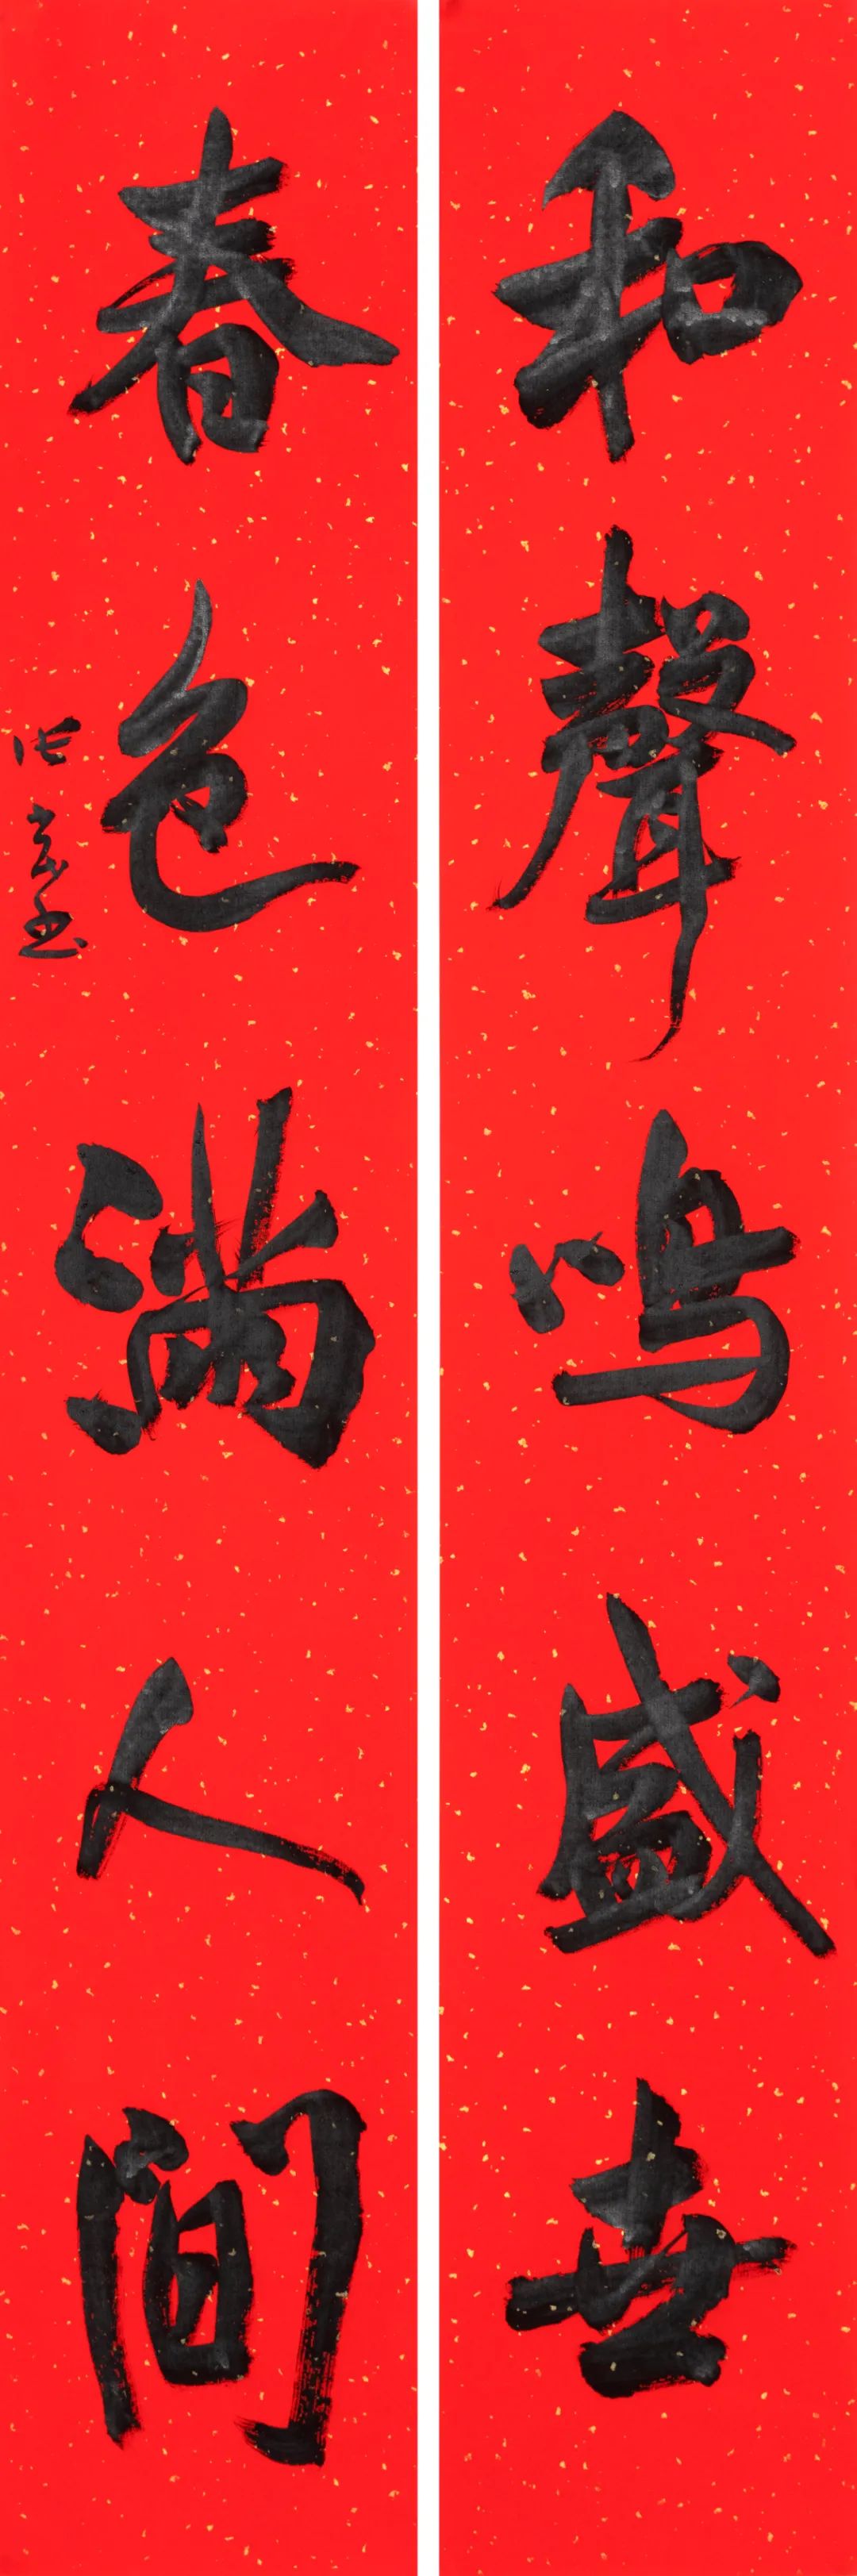 和聲鳴盛世
春色滿人間